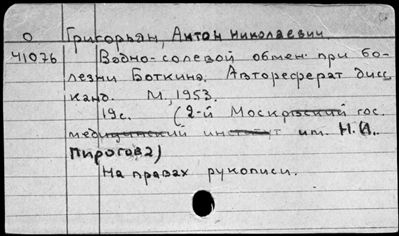 О Григорьян, Антон Николаевич
41076 Водно-солевой обмен при бо-
лезни Боткина. Автореферат дисс.
канд. М., 1953.
19с. (2-й Московский гос.
медицинский институт им. Н.И.
Пирогова)
На правах рукописи.